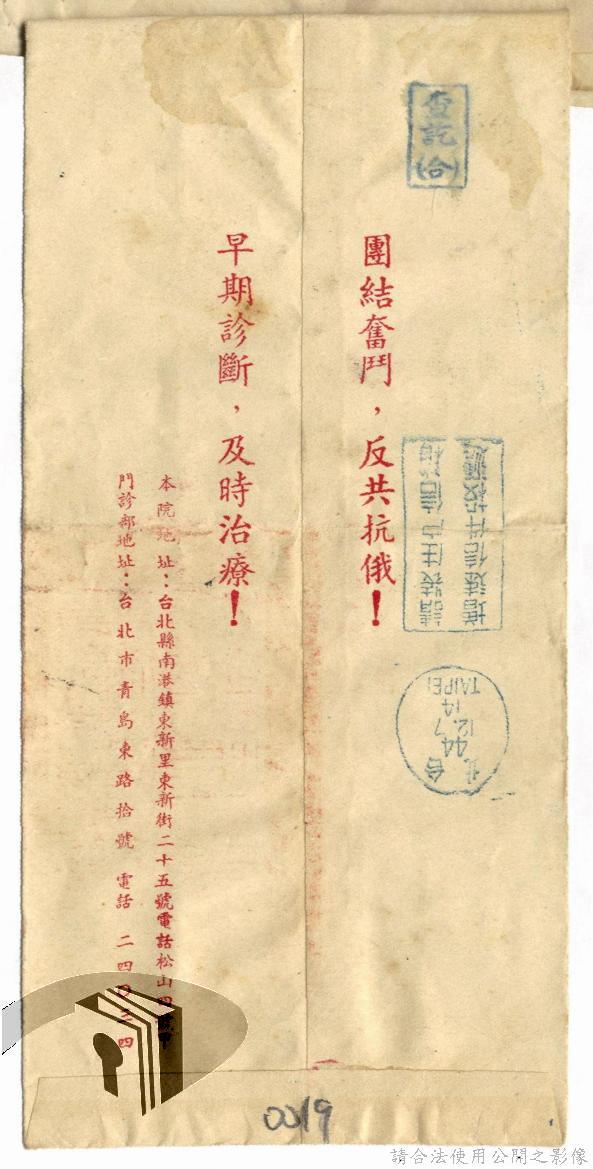 查訖
團結奮鬥，反共抗俄！
請裝住戶信箱
增速信件投遞
台北
44.7
12.14
TAIPEI
早期診斷，及時治療！
本院地址：台北縣南港鎮東新里東新街二十五號電話松山四
門診部地址：台北市青島東路拾號 電話 二四四三四
0019
請合法使用公開之影像